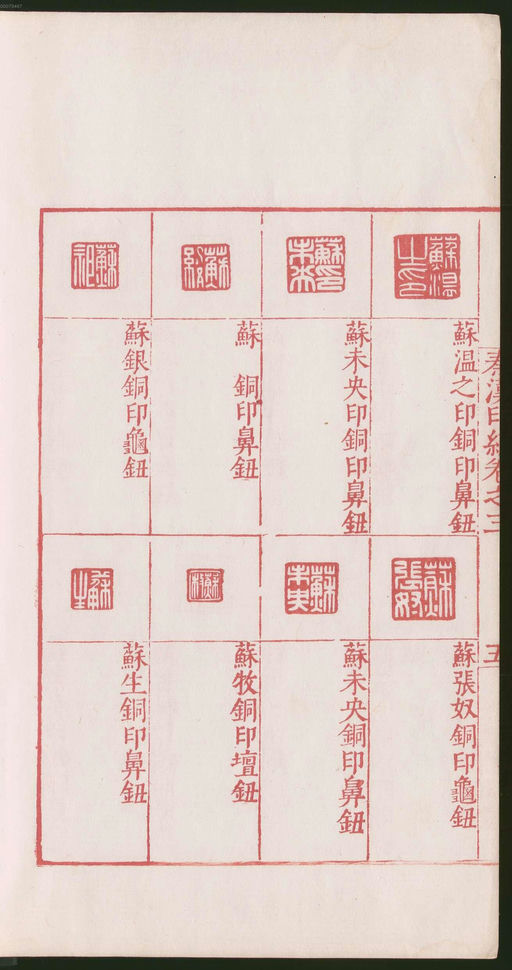 秦漢印統卷之三
五
蘇温之印銅印鼻鈕
蘇未央印銅印鼻鈕
蘇 銅印鼻鈕
蘇銀銅印龜鈕
蘇張奴銅印龜鈕
蘇未央銅印鼻鈕
蘇牧銅印壇鈕
蘇生銅印鼻鈕